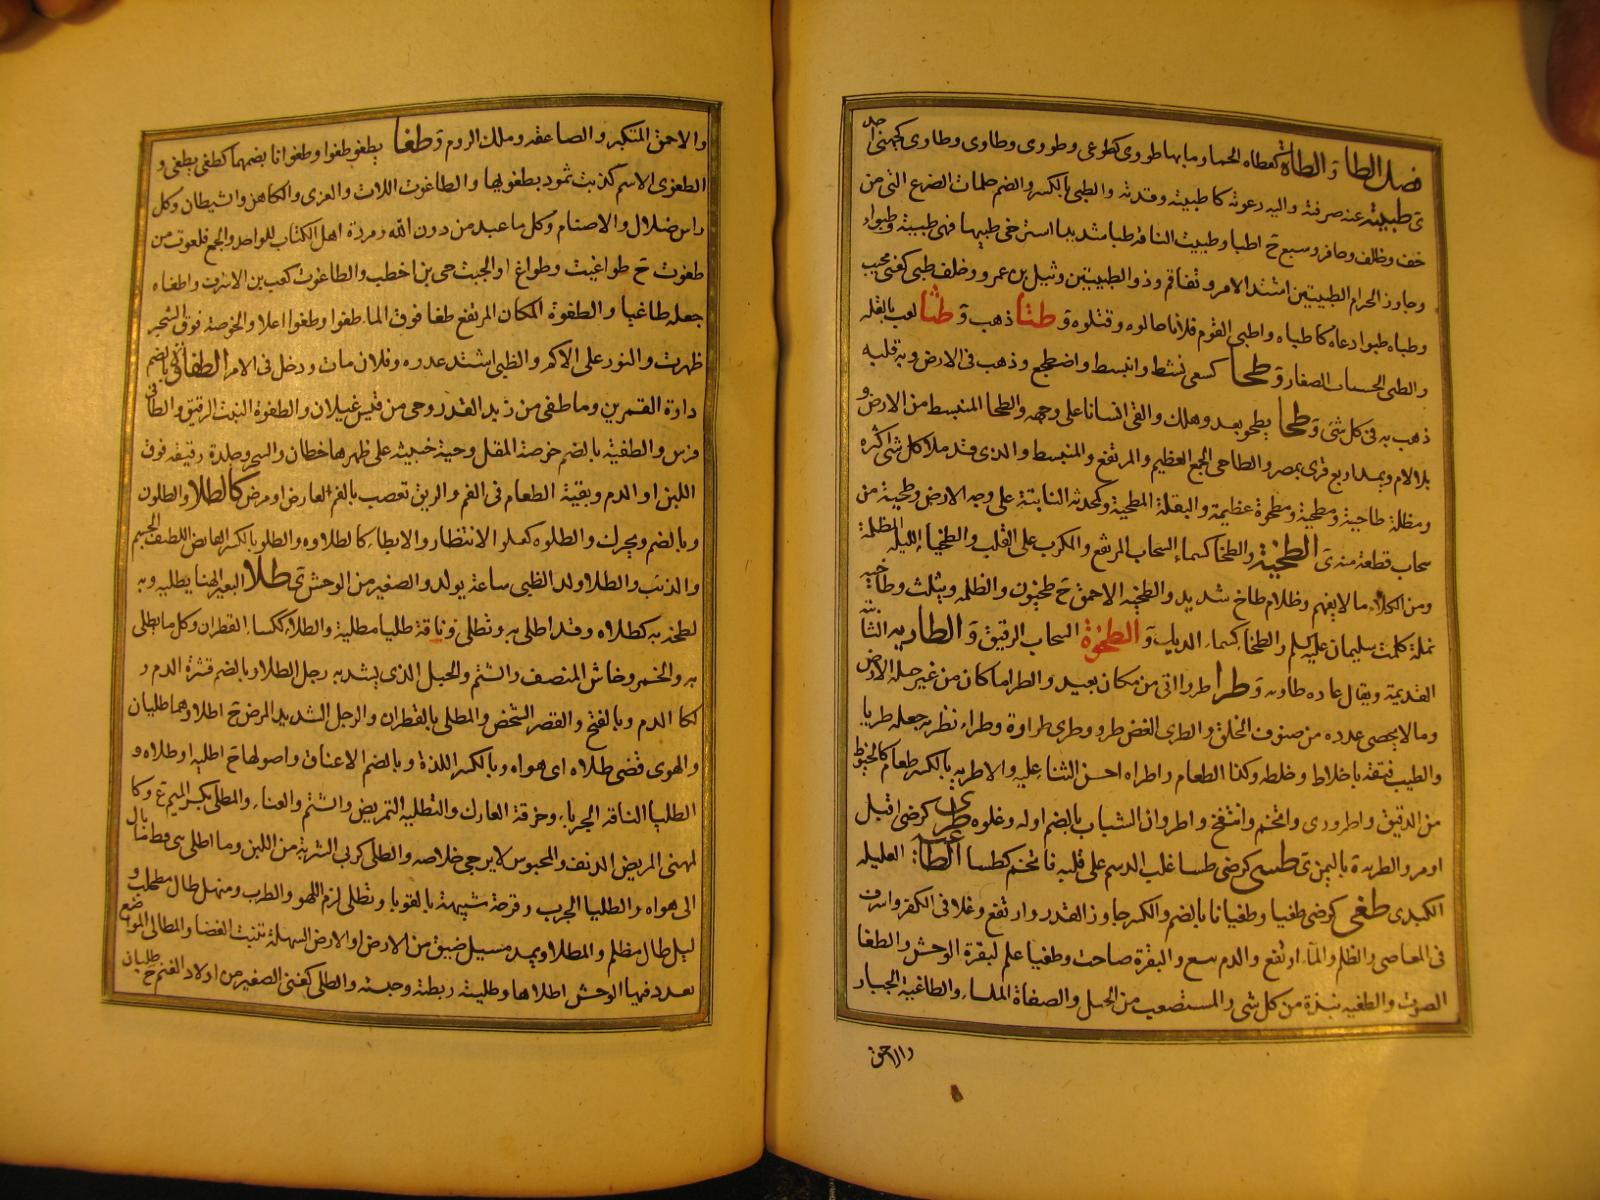 فصل الطا و الطاة كعطاه الحماة وما بها طوری كطوعی وطوری وطاوی وطاوی كجهنی احد
ی طبيته عنه صرفته واليه دعوته كاطبيته وقدته والطبی بالكسر والضم حلمات الضرع التی من
خف وظلف وحافر وسبع ح اطبا وطبيت الناقة طبا شديدا استرخی طبيها فهی طبية وطبوا
وجاوز الحزام الطبيين اشتد الامر وتفاقم وذو الطبيين وثيل بن عمرو وخلف طبی كغنی مجيب
وطباه طبوا دعاه كاطباه واطبی القوم فلانا خالوه وقتلوه و طتا ذهب و طثا لعب بالقلة
والطثی الخشبات الصغار و طحا كسعی نشط وانبسط واضطجع وذهب فی الارض وبه قلبه
ذهب به فی كل شئ و طحا يطحو بعد وهلك والقی انسانا علی وجهه والطحا المنبسط من الارض و
بلا لام ويمد اربع قری بمصر والطاحی الجمع العظيم والمرتفع والمنبسط والذی قد ملا كل شئ كثرة
ومظلة طاحية ومطحية ومطحوة عظيمة والبقلة المطحية كمحدثة النابتة علی وجه الارض وطحية من
سحاب قطعة منه ی الطخية والطخا كسماء السحاب المرتفع والكرب علی القلب والطخيا الليلة المظلمة
ومن الكلام ما لا يفهم وظلام طاخ شديد والطخيه الاحمق ح طخيون والظلمه ويثلث وطاخيه
نملة كلمت سليمان عليه السلم والطخا كسماء الدياب و الطخوة السحاب الرقيق و الطاديه الثابتة
القديمة ويقال عاده طادية و طرا طروا اتی من مكان بعيد والطرا ما كان من غير جبلة الارض
وما لا يحصی عدده من صنوف الخلق والطری الغض طرو وطری طراوة وطراء نظريه جعله طريا
والطيب فتقه باخلاط وخلطه وكذا الطعام واطراه احسن الثناء عليه والاطريه بالكسر طعام كالخيوط
من الدقيق واطروری واتخم وانتفخ واطروان الشباب بالضم اوله وغلوه ی طری كرضی اقبل
او مر والطريدة باليمن ی طسی كرضی طسا غلب الدسم علی قلبه فاتخم كطسا الطاعيه العليله
الكبدی طغی كرضی طغيا وطغيانا بالضم والكسر جاوز القدر وارتفع وغلا فی الكفر واسرف
فی المعاصی والظلم والماء ارتفع والدم تبيغ والبقرة صاحت وطغيا علم لبقرة الوحش والطغا
الصوت والطغيه نبذة من كل شئ والمستصعب من الجبل والصفاة الملساء والطاغية الجبار
والاحمق
والاحمق المتكبر والصاعقه وملك الروم و طغا يطغو طغوا وطغوانا بضمهما كطغی يطغی و
الطغوی الاسم كذبت ثمود بطغويها والطاغوت اللات والعزی والكاهن والشيطان وكل
راس ضلال والاصنام وكل ما عبد من دون الله ومردة اهل الكتاب للواحد والجمع فلعوت من
طغوت ح طواغيت وطواغ او الجبت حی بن اخطب والطاغوت كعب بن الاشرف واطغاه
جعله طاغيا والطغوة المكان المرتفع طفا فوق الماء طفوا وطفوا اعلا والخوصة فوق الشجر
ظهرت والثور علی الاكم والظبی اشتد عدوه وفلان مات ودخل فی الامر الطفاوة بالضم
دارة القمرين وما طفی من زبد القدر وحی من قيس غيلان والطفوة النبت الرقيق والطافی
فرس والطفية بالضم خوصة المقل وحية خبيثة علی ظهرها خطان والسحر وجلدة رقيقه فوق
اللبن او الدم وبقية الطعام فی الفم والريق تعصب بالفم لعارض او مرض كالطلا والطلون
وبالضم ويحرك والطلوه كعلو الانتظار والابطاء كالطلاوه والطلو بالكسر القانص اللطيف الجسم
والذئب والطلا ولد الظبی ساعة يولد والصغير من الوحش ی طلا البعير الهنا يطليه وبه
لطخه به كطلاه وقد اطلی به وتطلی وناقة طليا مطلية والطلاء ككساء القطران وكل ما يطلی
به والخمر وخاثر المنصف والشتم والحبل الذی يشد به رجل الطلا وبالضم قشرة الدم و
كما الدم وبالفتح والقصر الشخص والمطلی بالقطران والرجل الشديد المرض ح اطلا وهما طليان
والهوی قضی طلاه ای هواه وبالكسر اللذة وبالضم الاعناق واصولها ح اطليه او طلاه و
الطليا الناقة الجرباء وخرقة العارك والتطليه التمريض والشتم والغناء والمطلی بكسر الميم ع وكا
لمهنی المريض الدنف والمحبوس لا يرجی خلاصه والطلی كربی الشربة من اللبن وما اطلی نبی قط ما مال
الی هواه والطليا الجرب وقرحة شبيهة بالقوبا وتطلی لزم اللهو والطرب ومنهل طال مطحلب و
ليل طال مظلم والمطلا ويمد مسيل ضيق من الارض او الارض السهلة تنبت الغضا والمطالی المواضع
تغدو فيها الوحش اطلاها وطليته ربطته وحبسته والطلی كغنی الصغير من اولاد الغنم ح طليان